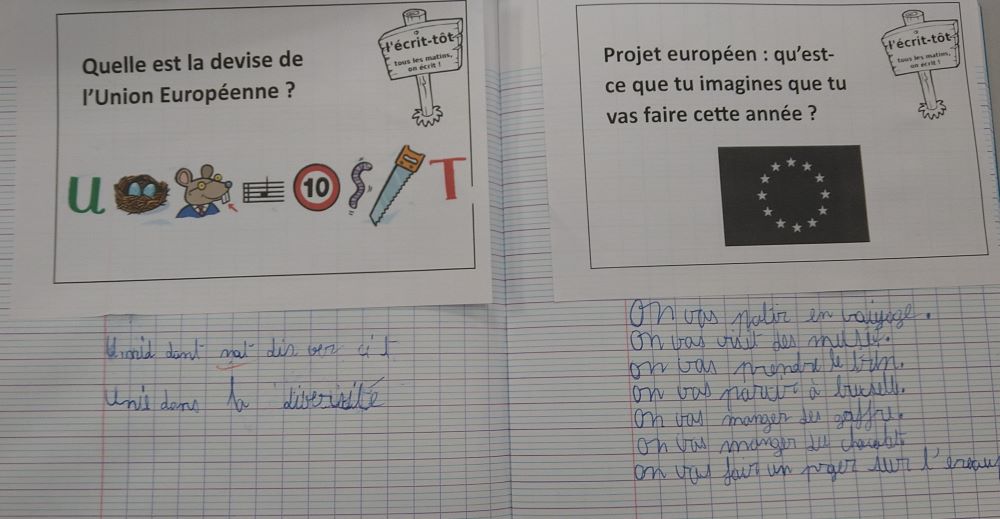 Quelle est la devise de
l'Union Européenne ?
l'écrit-tôt
tous les matins,
on écrit !
U
10
T
U.nid dant nat dix ver ci t
Unie dans la diversité
Projet européen : qu'est-
ce que tu imagines que tu
vas faire cette année ?
l'écrit-tôt
tous les matins,
on écrit !
on vas en
on vas visit des
on vas prendre le
on vas à
on vas manger des gaffre.
on vas manger
on vas fair un sur l'